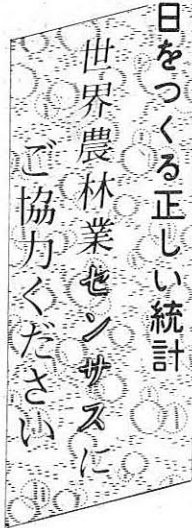 日をつくる正しい統計
世界農林業センサスに
ご協力ください